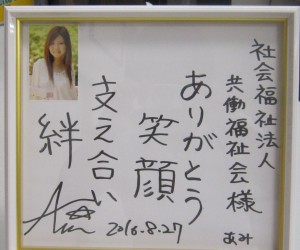 社会福祉法人
共働福祉会様
あみ
ありがとう
笑顔
支え合い
絆
2016.8.27